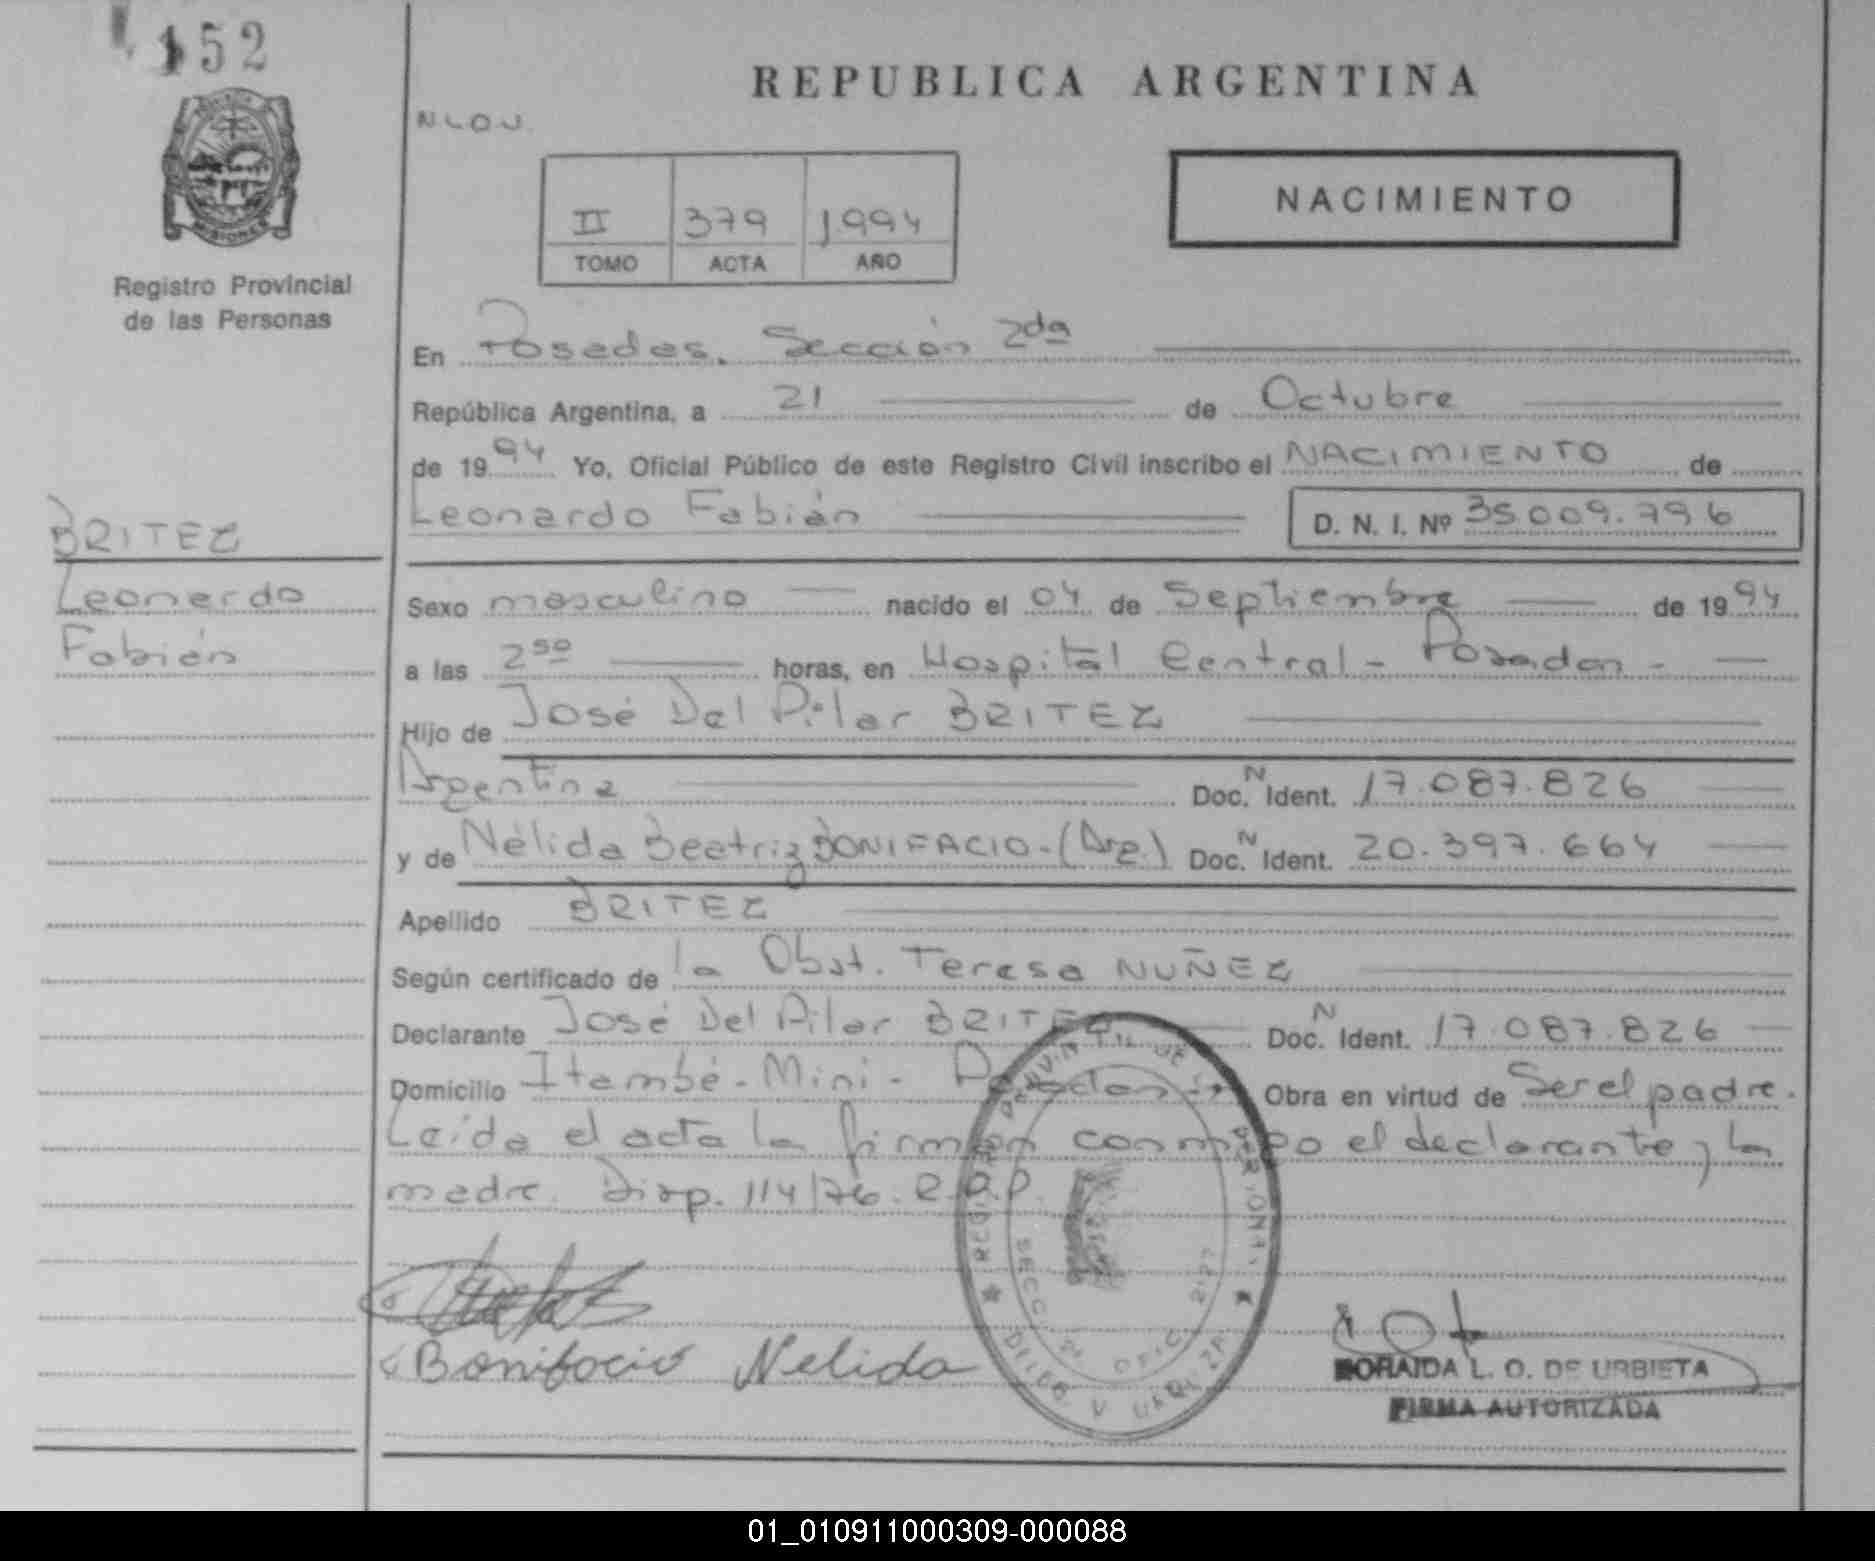 152
MISIONES
Registro Provincial
de las Personas
BRITEZ
Leonardo
Fabián
REPUBLICA ARGENTINA
N.L.O.U.
II 379 1.994
TOMO ACTA AÑO
NACIMIENTO
En Posadas. Sección 2da
República Argentina, a 21 de Octubre
de 1994 Yo, Oficial Público de este Registro Civil inscribo el NACIMIENTO de
Leonardo Fabián D. N. I. Nº 35.009.796
Sexo masculino nacido el 04 de Septiembre de 1994
a las 2 50 horas, en Hospital Central - Posadas -
Hijo de José Del Pilar BRITEZ
Argentina Doc. N Ident. 17.087.826
y de Nélida Beatriz BONIFACIO. (Arg.) Doc. N Ident. 20.397.664
Apellido BRITEZ
Según certificado de la Obst. Teresa NUÑEZ
Declarante José Del Pilar BRITEZ Doc. N Ident. 17.087.826
Domicilio Itambé - Mini - Posadas Obra en virtud de Ser el padre.
Leída el acta la firman conmigo el declarante y la
madre. Disp. 114/76. R.P.P.
Bonifacio Nelida
REGISTRO PROVINCIAL DE LAS PERSONAS
SECC 2ª OFIC
DELEG. V. URQUIZA
NORAIDA L. O. DE URBIETA
FIRMA AUTORIZADA
01_010911000309-000088